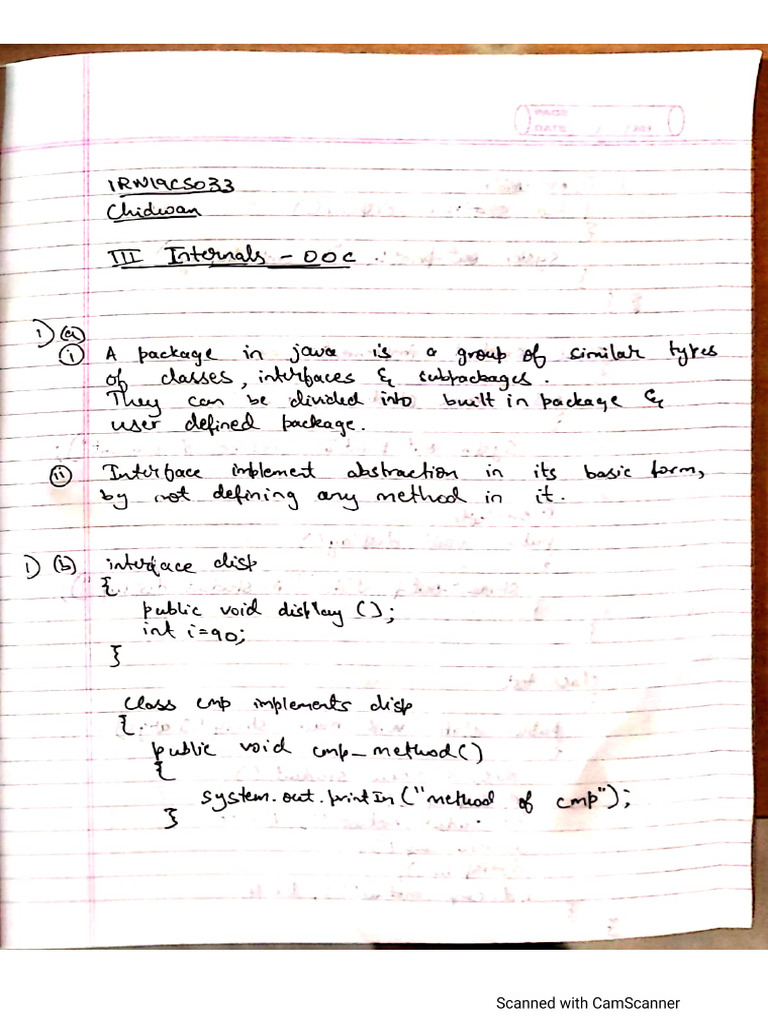 PAGE
DATE
1RN19CS033
Chidwan
III Internals - OOC
1) (a)
(i) A package in java is a group of similar types
of classes, interfaces & subpackages.
They can be divided into built in package &
user defined package.
(ii) Interface implement abstraction in its basic form,
by not defining any method in it.
1) (b) interface disp
{
public void display ();
int i=90;
}
class cmp implements disp
{
public void cmp_method()
{
system.out.println("method of cmp");
}
Scanned with CamScanner